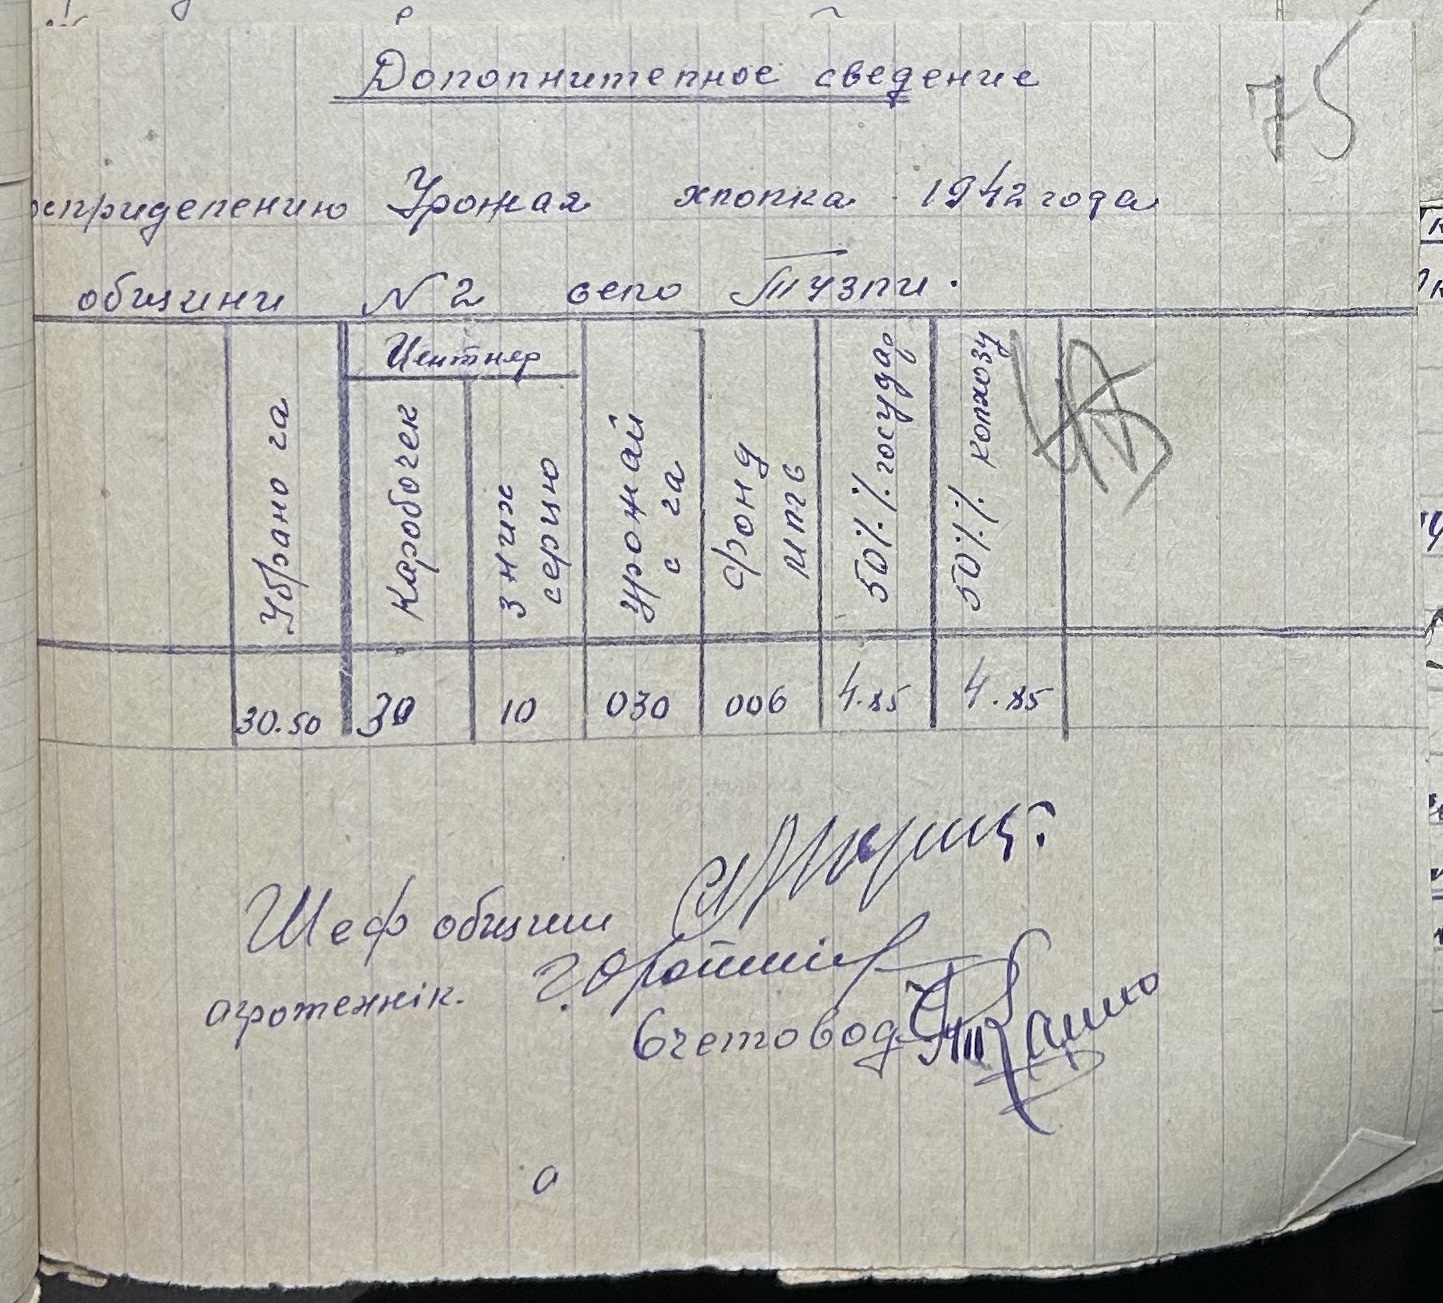 Дополнителное сведение
75
осприделению Урожая хлопка 1942 года
общини N 2 село Тузли.
Убрано га
Центнер
Каробочек
з них
серцю
урожай
с га
фонд
50%% государ
50%% колхозу
30.50 30 10 030 006 4.85 4.85
Шеф общини
агротехнік.
Счетовод